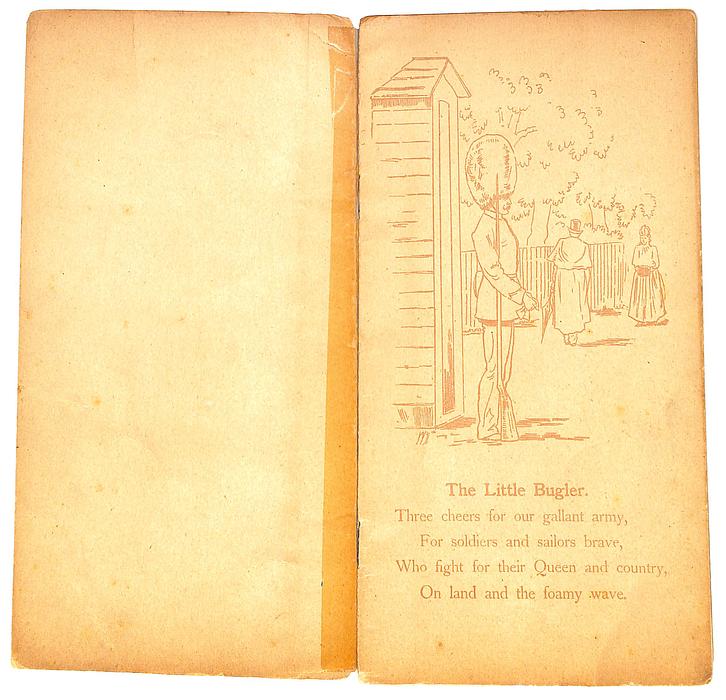 The Little Bugler.
Three cheers for our gallant army,
For soldiers and sailors brave,
Who fight for their Queen and country,
On land and the foamy wave.